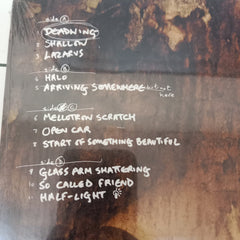 side A
1 DEADWING
2 SHALLOW
3 LAZARUS
side B
4 HALO
5 ARRIVING SOMEWHERE but not here
side C
6 MELLOTRON SCRATCH
7 OPEN CAR
8 START OF SOMETHING BEAUTIFUL
side D
9 GLASS ARM SHATTERING
10 SO CALLED FRIEND
11 HALF-LIGHT